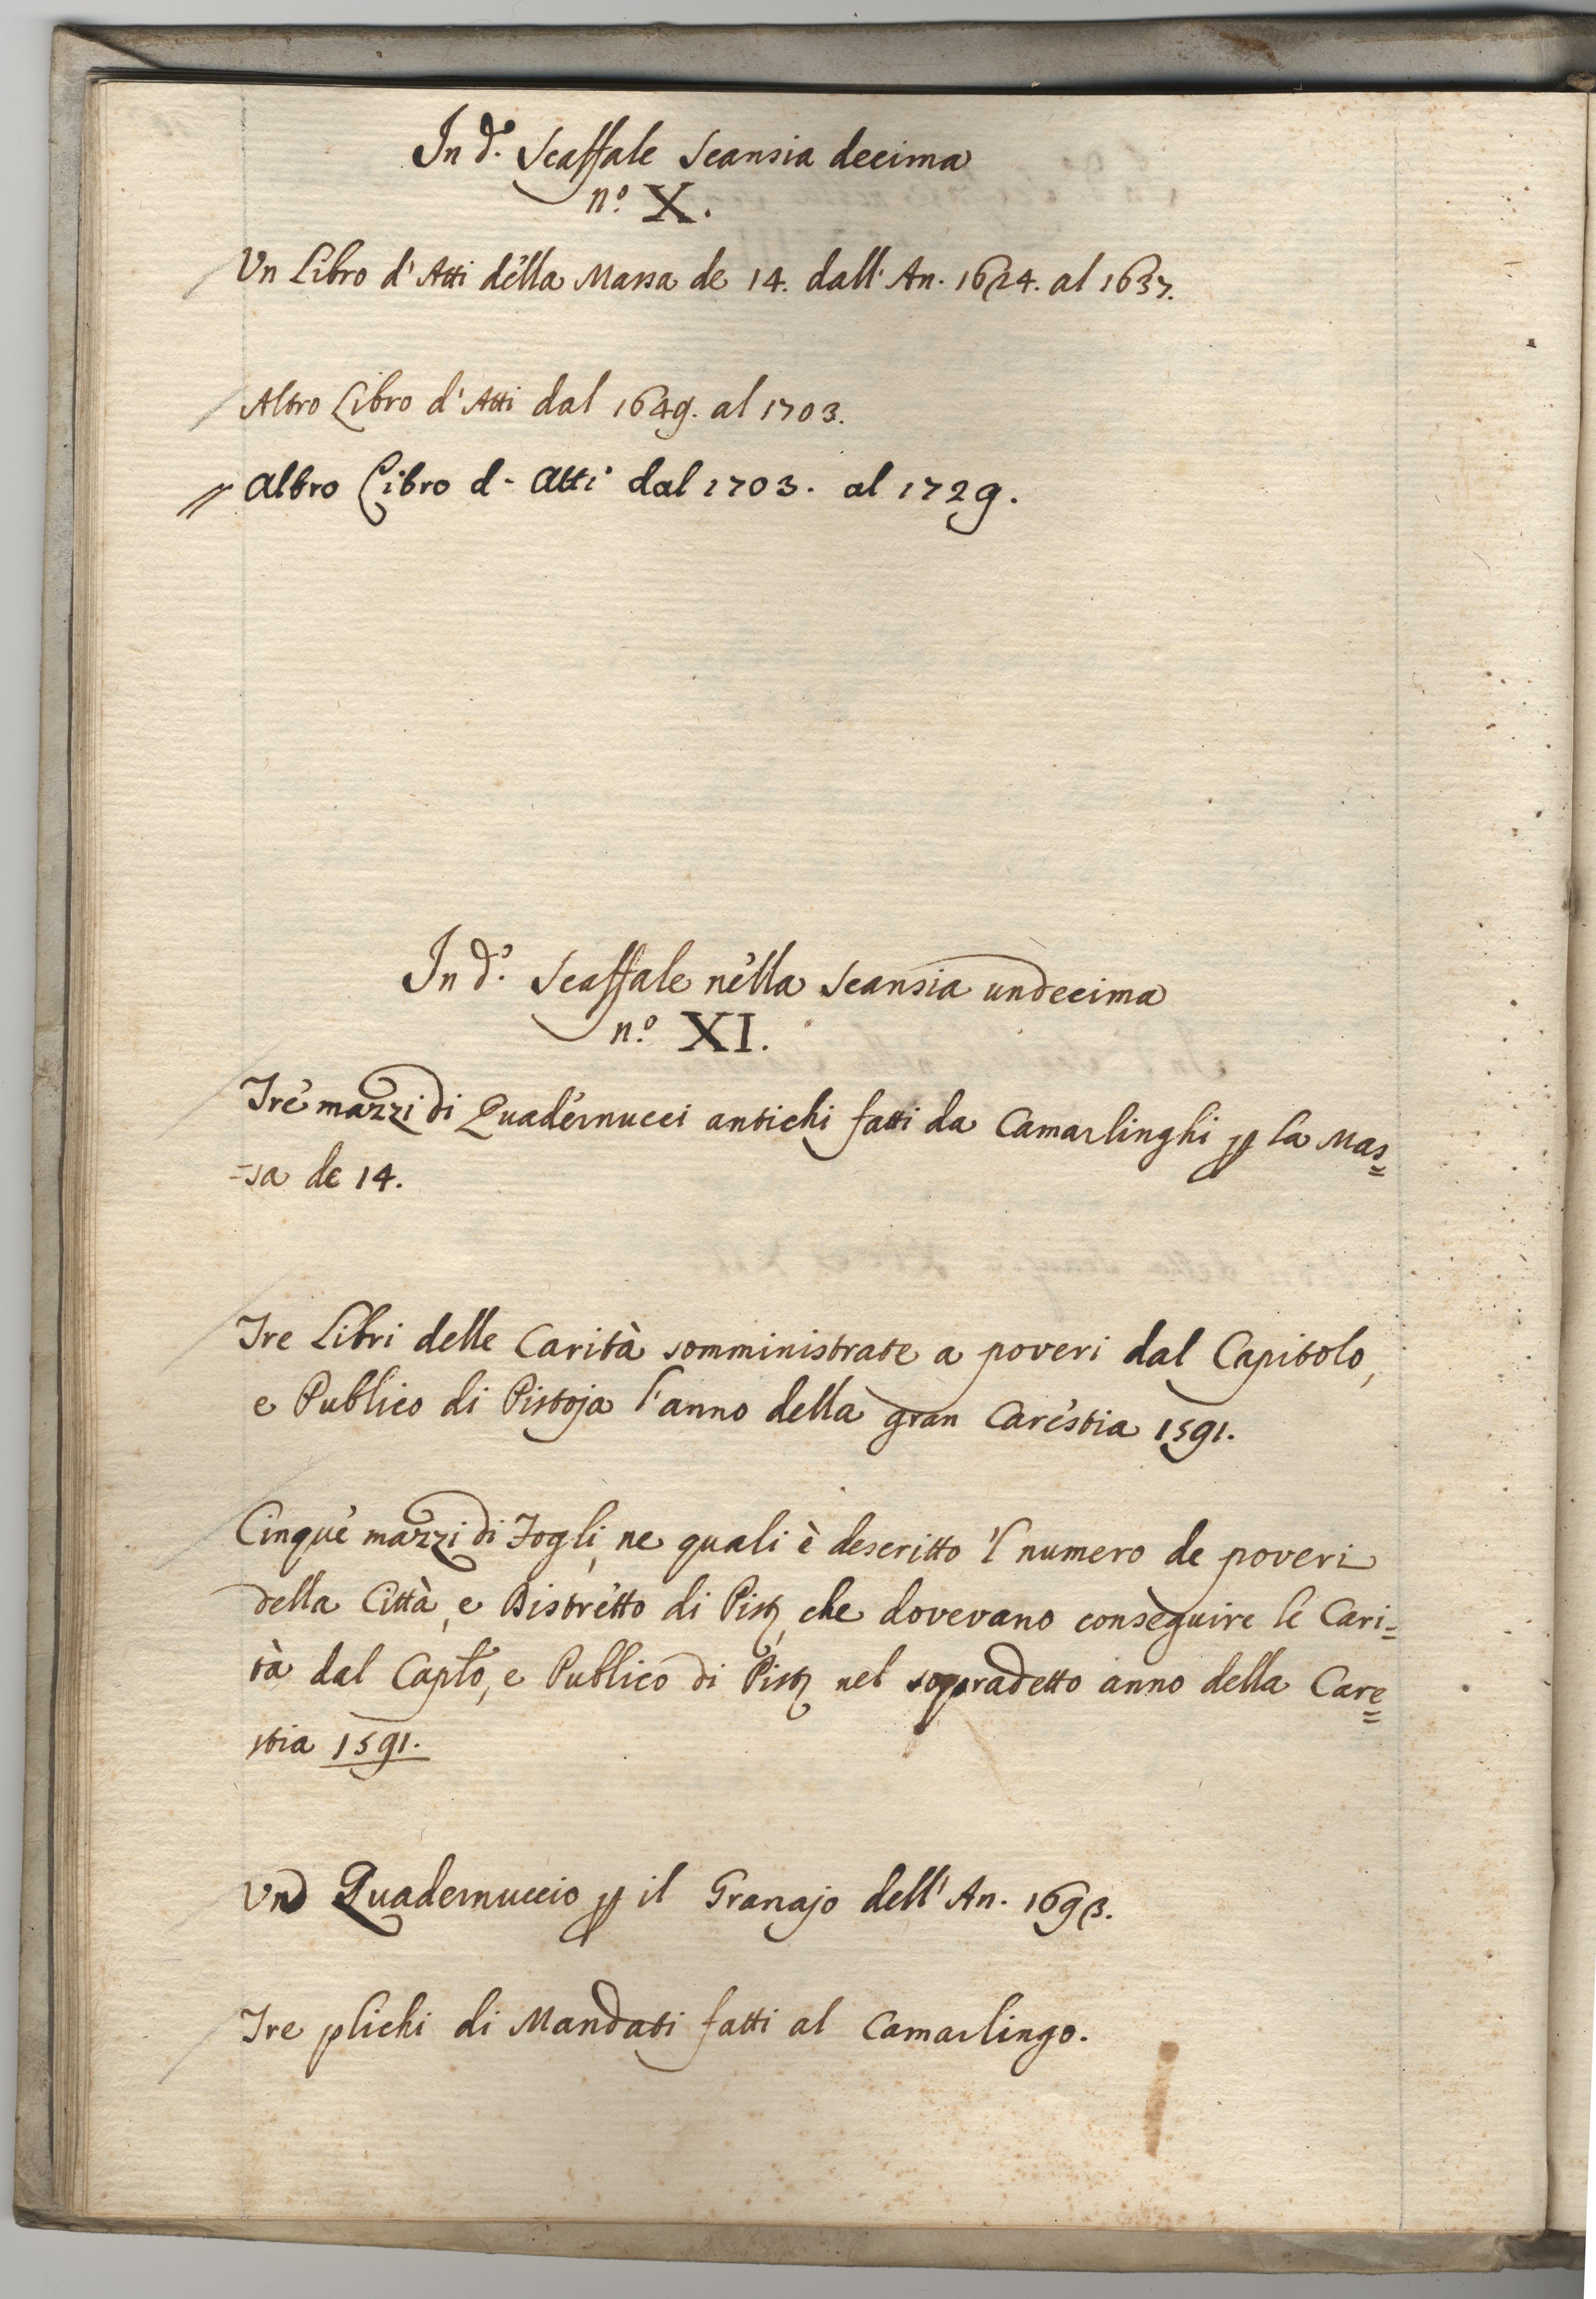 In d.° Scaffale Scansia decima
n.° X.
Vn Libro d'Atti della Massa de 14. dall'An. 1624. al 1637.
Altro Libro d'Atti dal 1649. al 1703.
Altro Libro d'Atti dal 1703. al 1729.
In d.° Scaffale nella Scansia undecima
n.° XI.
Tre mazzi di Quadernucci antichi fatti da Camarlinghi p la Mas=
=sa de 14.
Tre Libri delle Carità somministrate a poveri dal Capitolo,
e Publico di Pistoja l'anno della gran Carestia 1591.
Cinque mazzi di Fogli, ne quali è descritto 'l numero de poveri
della Città, e Distretto di Pist, che dovevano conseguire le Cari=
tà dal Caplo, e Publico di Pist nel sopradetto anno della Care=
stia 1591.
Vno Quadernuccio p il Granajo dell'An. 1693.
Tre plichi di Mandati fatti al Camarlingo.